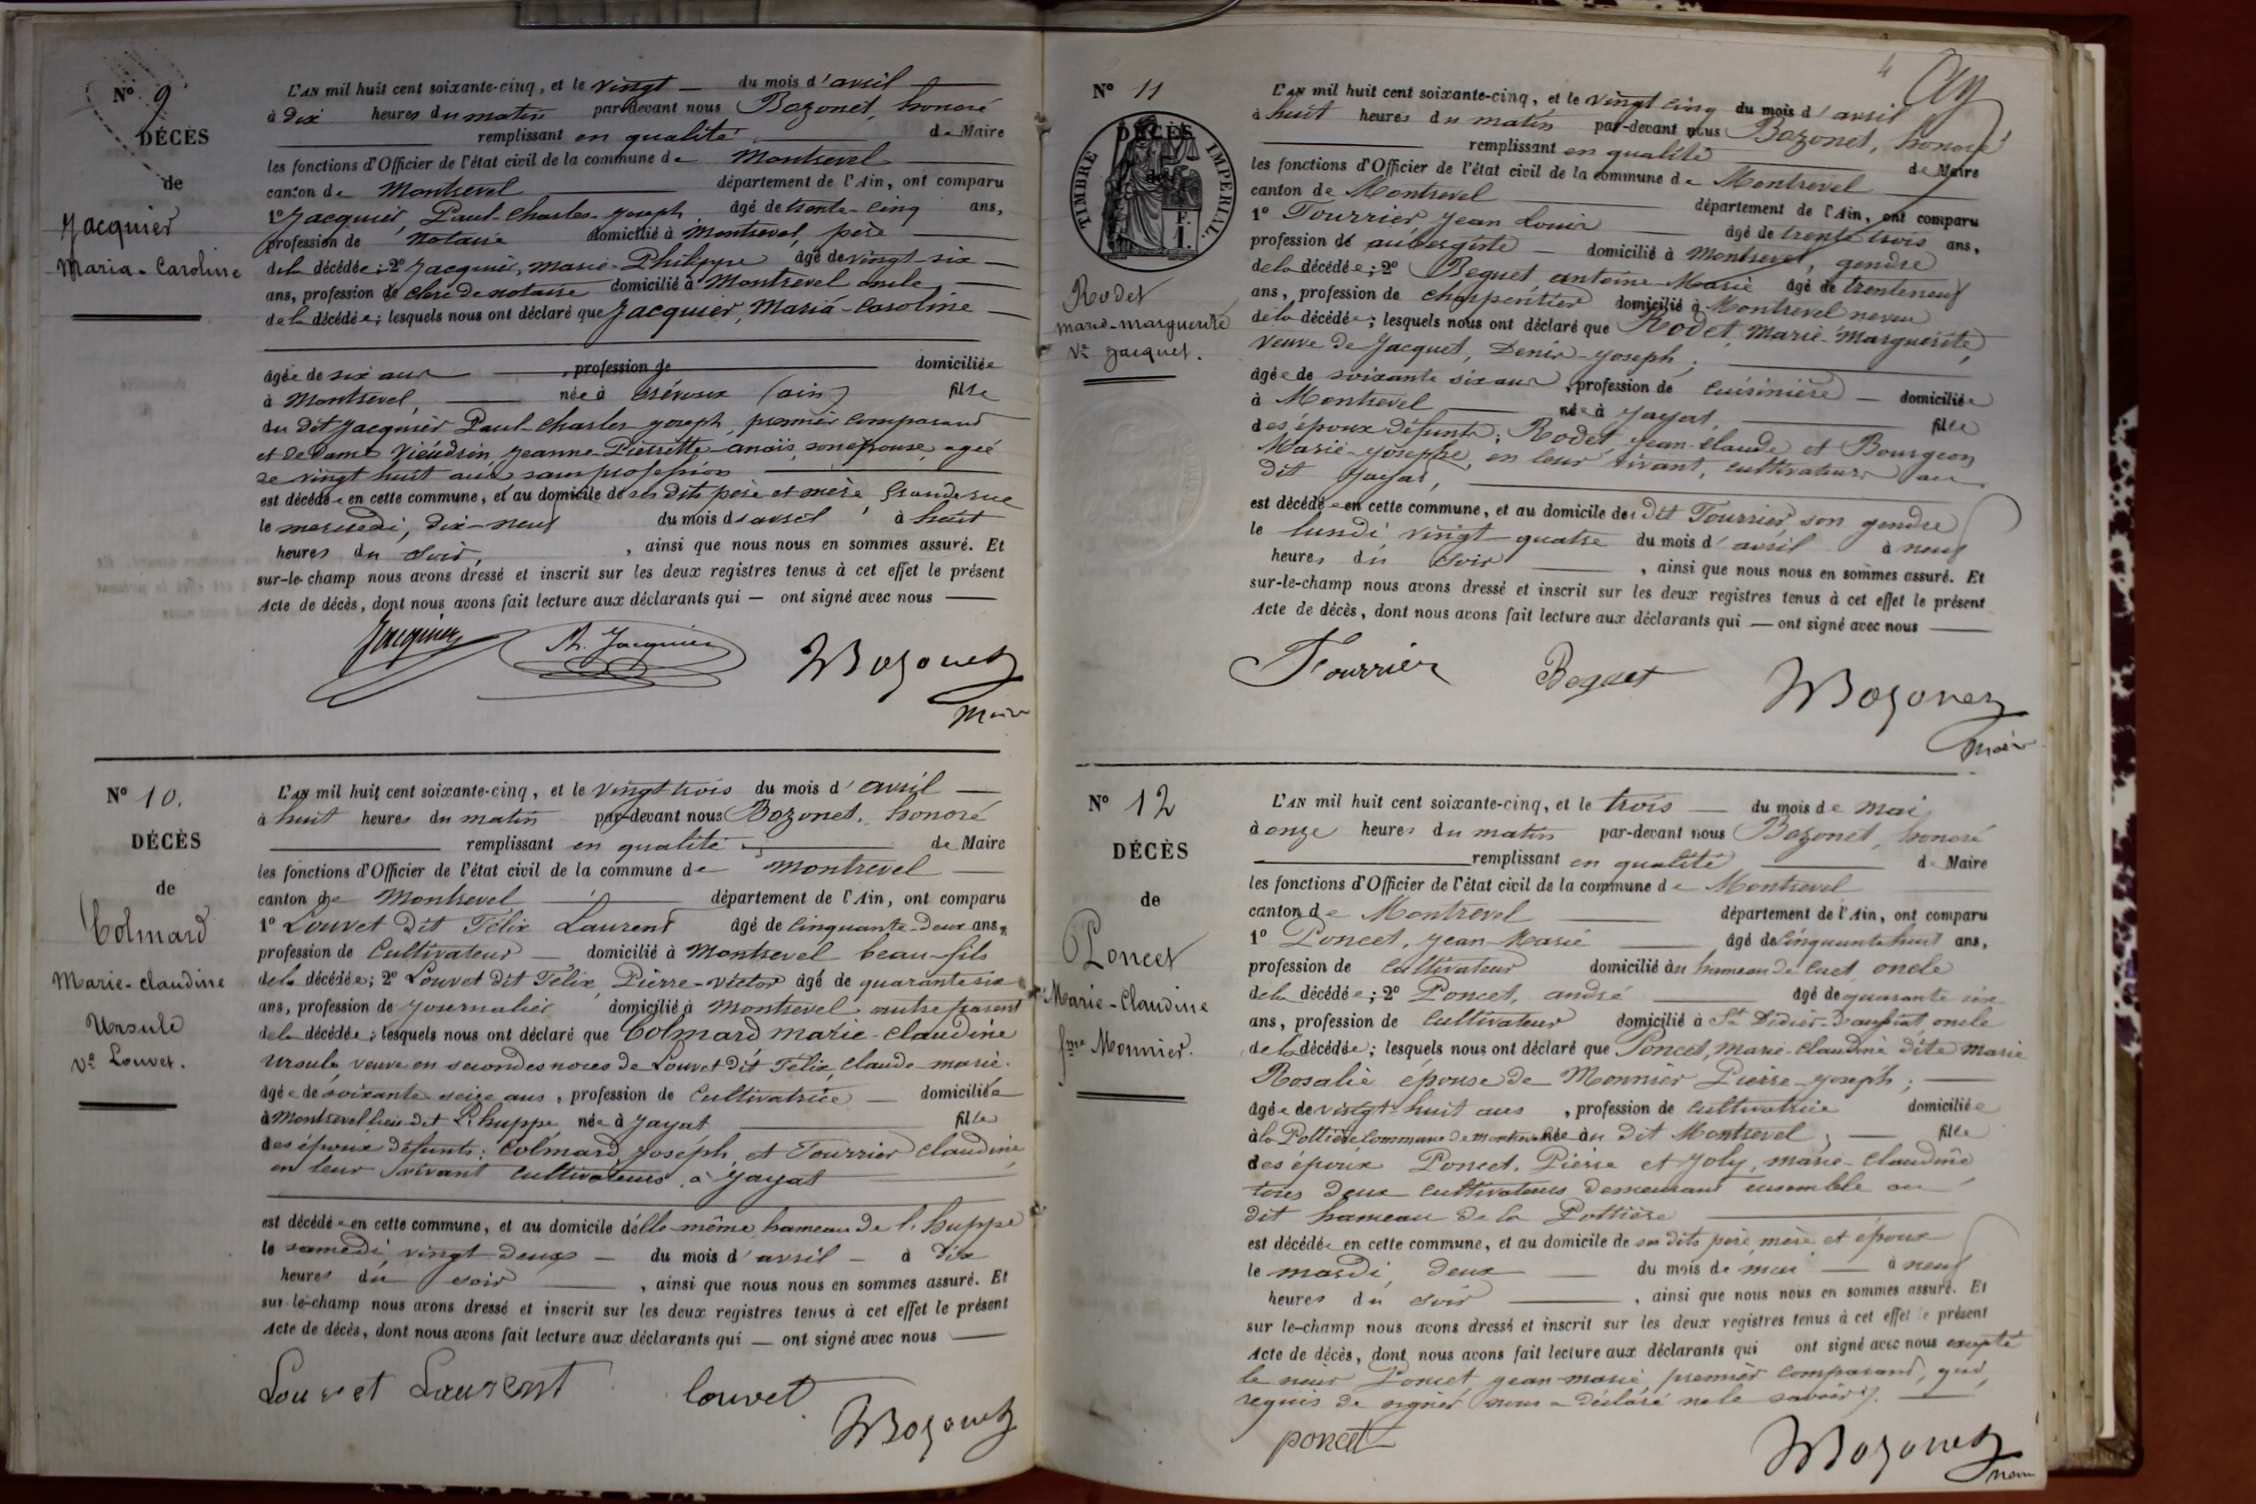 Nº 9
DÉCÈS
de
Jacquier
Maria-Caroline
L'AN mil huit cent soixante-cinq, et le vingt — du mois d'avril —
à dix heures du matin par-devant nous Bozonet, honoré
remplissant en qualité de Maire
les fonctions d'Officier de l'état civil de la commune de Montrevel
canton de Montrevel département de l'Ain, ont comparu
1º Jacquier, Paul-Charles-Joseph âgé de trente-cinq ans,
profession de notaire domicilié à Montrevel, père
de la décédée; 2º Jacquier, Marie-Philippe âgé de vingt-six
ans, profession de clerc de notaire domicilié à Montrevel oncle
de la décédée; lesquels nous ont déclaré que Jacquier, Maria-Caroline
âgée de six ans, profession de domiciliée
à Montrevel, née à (ain) fille
du dit Jacquier Paul-Charles Joseph, premier comparand
et de Dame Jeanne-Pierrette-anaïs, son épouse, agée
de vingt huit ans sans profession
est décédée en cette commune, et au domicile de ses dits père et mère, Grande rue
le mercredi, dix-neuf du mois d'avril à huit
heures du soir, , ainsi que nous nous en sommes assuré. Et
sur-le-champ nous avons dressé et inscrit sur les deux registres tenus à cet effet le présent
Acte de décès, dont nous avons fait lecture aux déclarants qui — ont signé avec nous —
Jacquier Ph. Jacquier Bozonet
Maire
Nº 10.
DÉCÈS
de
Colmard
Marie-claudine
Ursule
Vᵉ Louvet.
L'AN mil huit cent soixante-cinq, et le vingt-trois du mois d'avril —
à huit heures du matin par-devant nous Bozonet, honoré
remplissant en qualité de Maire
les fonctions d'Officier de l'état civil de la commune de Montrevel
canton de Montrevel département de l'Ain, ont comparu
1º Louvet dit Félix Laurent âgé de cinquante-deux ans,
profession de Cultivateur — domicilié à Montrevel beau-fils
de la décédée; 2º Louvet dit Félix, Pierre-victor âgé de quarante six
ans, profession de journalier domicilié à Montrevel autre parent
de la décédée; lesquels nous ont déclaré que Colmard marie-claudine
ursule, veuve en secondes noces de Louvet dit Félix, claude-marie.
âgée de soixante-seize ans, profession de Cultivatrice — domiciliée
à Montrevel lieu dit L'huppe née à Jayat fille
des époux défunts: Colmard, Joseph, et Tourrier claudine
en leur vivant cultivateurs à Jayat
est décédée en cette commune, et au domicile d'elle-même, hameau de l'huppe
le samedi, vingt-deux — du mois d'avril — à dix
heures du soir , ainsi que nous nous en sommes assuré. Et
sur-le-champ nous avons dressé et inscrit sur les deux registres tenus à cet effet le présent
Acte de décès, dont nous avons fait lecture aux déclarants qui — ont signé avec nous —
Louvet Laurent louvet
Bozonet
4
Nº 11
DÉCÈS
de
TIMBRE IMPÉRIAL
Rodet
marie-marguerite
Vᵉ Jacquet.
L'AN mil huit cent soixante-cinq, et le vingt cinq du mois d'avril
à huit heures du matin par-devant nous Bozonet, honoré
remplissant en qualité de Maire
les fonctions d'Officier de l'état civil de la commune de Montrevel
canton de Montrevel département de l'Ain, ont comparu
1º Tourrier, Jean Louis âgé de trente trois ans,
profession de aubergiste — domicilié à Montrevel, gendre
de la décédée; 2º Beguet antoine-Marie âgé de trente neuf
ans, profession de charpentier domicilié à Montrevel neveu
de la décédée; lesquels nous ont déclaré que Rodet, Marie-Marguerite,
veuve de Jacquet, Denis-Joseph;
âgée de soixante six ans, profession de cuisinière — domiciliée
à Montrevel née à Jayat, fille
des époux défunts: Rodet, Jean-claude et Bourgeon
Marie-Josephe, en leur vivant, cultivateurs au
dit Jayat,
est décédée en cette commune, et au domicile de dit Tourrier, son gendre
le lundi vingt-quatre du mois d'avril à neuf
heures du soir , ainsi que nous nous en sommes assuré. Et
sur-le-champ nous avons dressé et inscrit sur les deux registres tenus à cet effet le présent
Acte de décès, dont nous avons fait lecture aux déclarants qui — ont signé avec nous —
Tourrier Beguet Bozonet
Maire
Nº 12
DÉCÈS
de
Poncet
Marie-Claudine
fᵐᵉ Monnier.
L'AN mil huit cent soixante-cinq, et le trois — du mois de mai
à onze heures du matin par-devant nous Bozonet, honoré
remplissant en qualité de Maire
les fonctions d'Officier de l'état civil de la commune de Montrevel
canton de Montrevel département de l'Ain, ont comparu
1º Poncet, Jean-Marie âgé de cinquante huit ans,
profession de cultivateur domicilié au hameau de Cuet oncle
de la décédée; 2º Poncet, andré âgé de quarante six
ans, profession de Cultivateur domicilié à St Didier-d'aussiat oncle
de la décédée; lesquels nous ont déclaré que Poncet, Marie-Claudine dite Marie
Rosalie épouse de Monnier Pierre-Joseph;
âgée de vingt-huit ans, profession de cultivatrice domiciliée
à la Pottière Commune de Montrevel née au dit Montrevel, — fille
des époux Poncet, Pierre et Joly, marie-Claudine
tous deux cultivateurs demeurant ensemble au
dit hameau de la Pottière
est décédée en cette commune, et au domicile de ses dits père, mère et époux
le mardi, deux — du mois de mai — à neuf
heures du soir , ainsi que nous nous en sommes assuré. Et
sur le-champ nous avons dressé et inscrit sur les deux registres tenus à cet effet le présent
Acte de décès, dont nous avons fait lecture aux déclarants qui ont signé avec nous excepté
le sieur Poncet Jean-marie, premier comparand, qui,
requis de signer nous a déclaré ne le savoir.
poncet Bozonet
maire